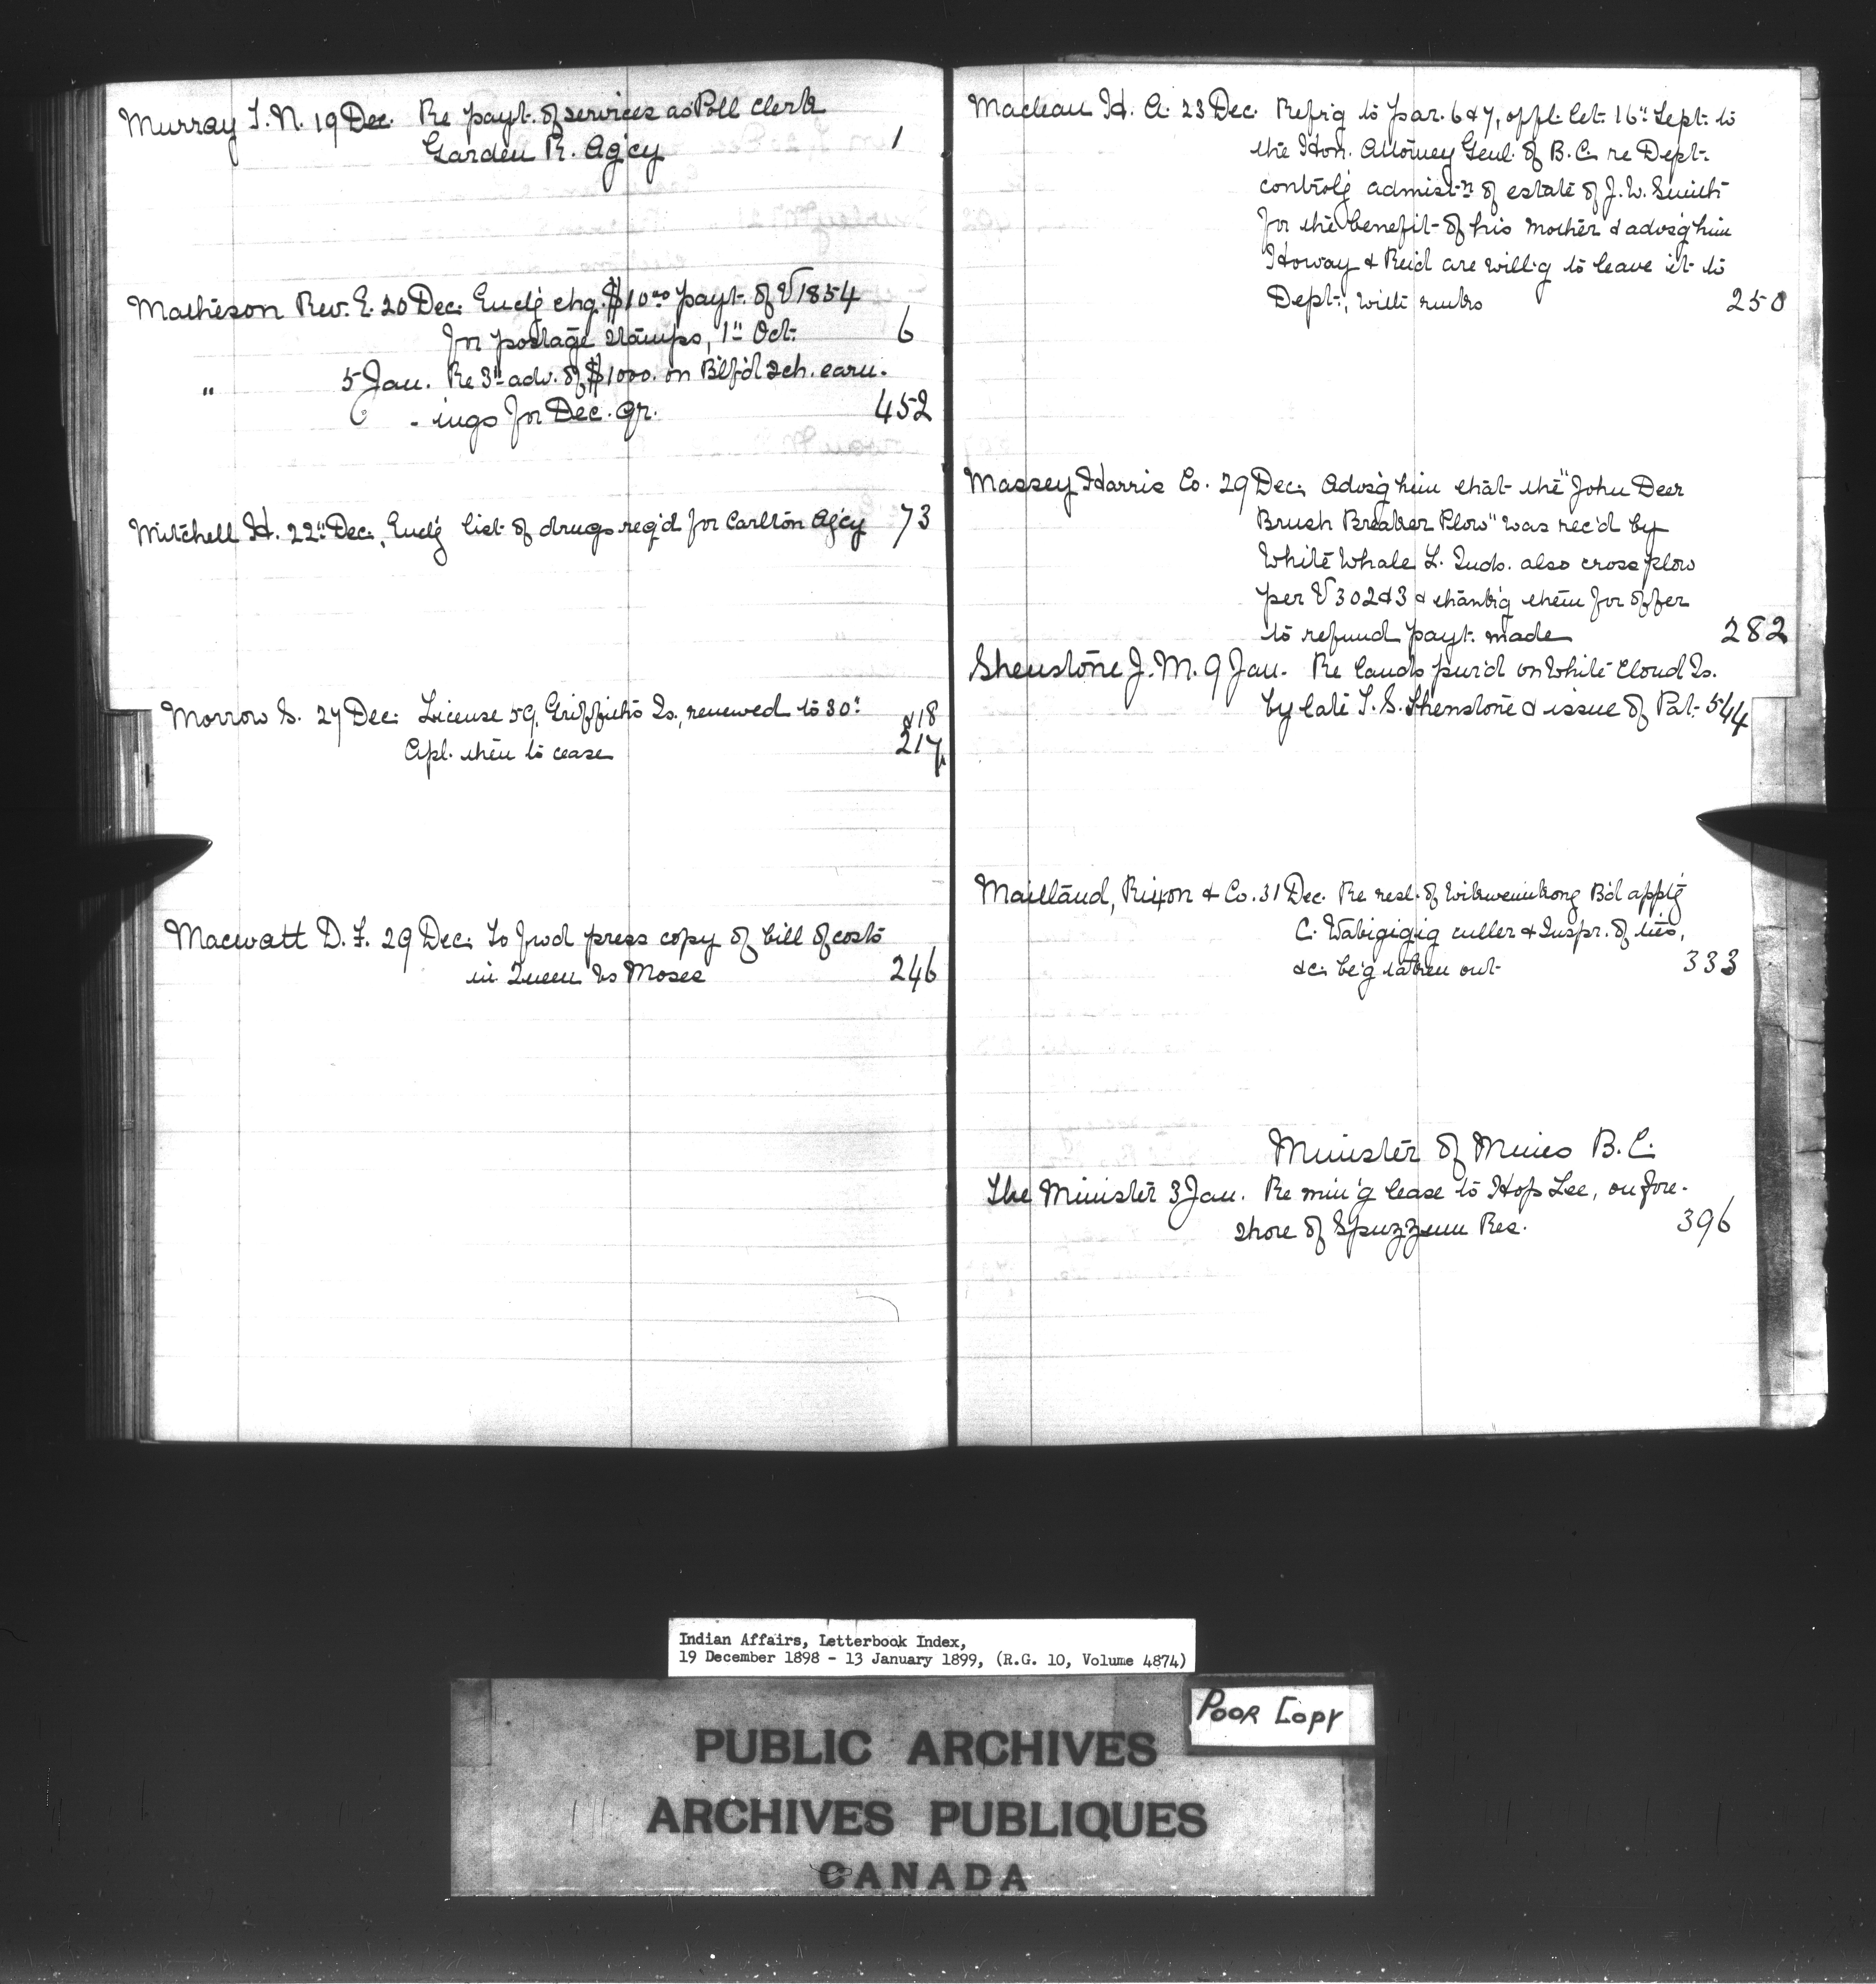 Murray T. N. 19 Dec. Re payt. of services as Poll Clerk
Garden R. Ag'cy 1
Matheson Rev. E. 20 Dec. Encl'g chq. $10.00 payt. of V 1854
for postage stamps, 1st Oct. 6
" 5 Jan. Re 3rd adv. of $1000. on B'lf'd sch. earn-
- ings for Dec. qr. 452
Mitchell H. 22nd Dec. Encl'g list of drugs req'd for Carlton Ag'cy 73
Morrow S. 27 Dec. License 59, Griffith's Is., renewed to 30th &18
Apl. then to cease 217
Macwatt D. F. 29 Dec. To fwd press copy of bill of costs
in Queen vs Moses 246
Maclean H. A. 23 Dec. Ref'r'g to par. 6 & 7, offl. let. 16th Sept. to
the Hon. Attorney Genl. of B. C. re Dept.
control'g admist-n of estate of J. W. Smith
for the benefit of his mother & advis'g him
Howay & Reid are will'g to leave it to
Dept., with rmks 250
Massey Harris Co. 29 Dec. Advis'g him that the "John Deer
Brush Breaker Plow" was rec'd by
White Whale L. Inds. also cross plow
per V 302 & 3 & thank'g them for offer
to refund payt. made 282
Shenstone J. M. 9 Jan. Re lands pur'd on White Cloud Is.
by late T. S. Shenstone & issue of Pat. 544
Maitland, Rixon & Co. 31 Dec. Re resl. of Wikwemikong B'd app't'g
C. Wabigigig culler & Inspr. of ties,
&c. be'g taken out 333
Minister of Mines B. C.
The Minister 3 Jan. Re min'g lease to Hop Lee, on fore-
shore of Spuzzum Res. 396
Indian Affairs, Letterbook Index,
19 December 1898 - 13 January 1899, (R.G. 10, Volume 4874)
POOR COPY
PUBLIC ARCHIVES
ARCHIVES PUBLIQUES
CANADA